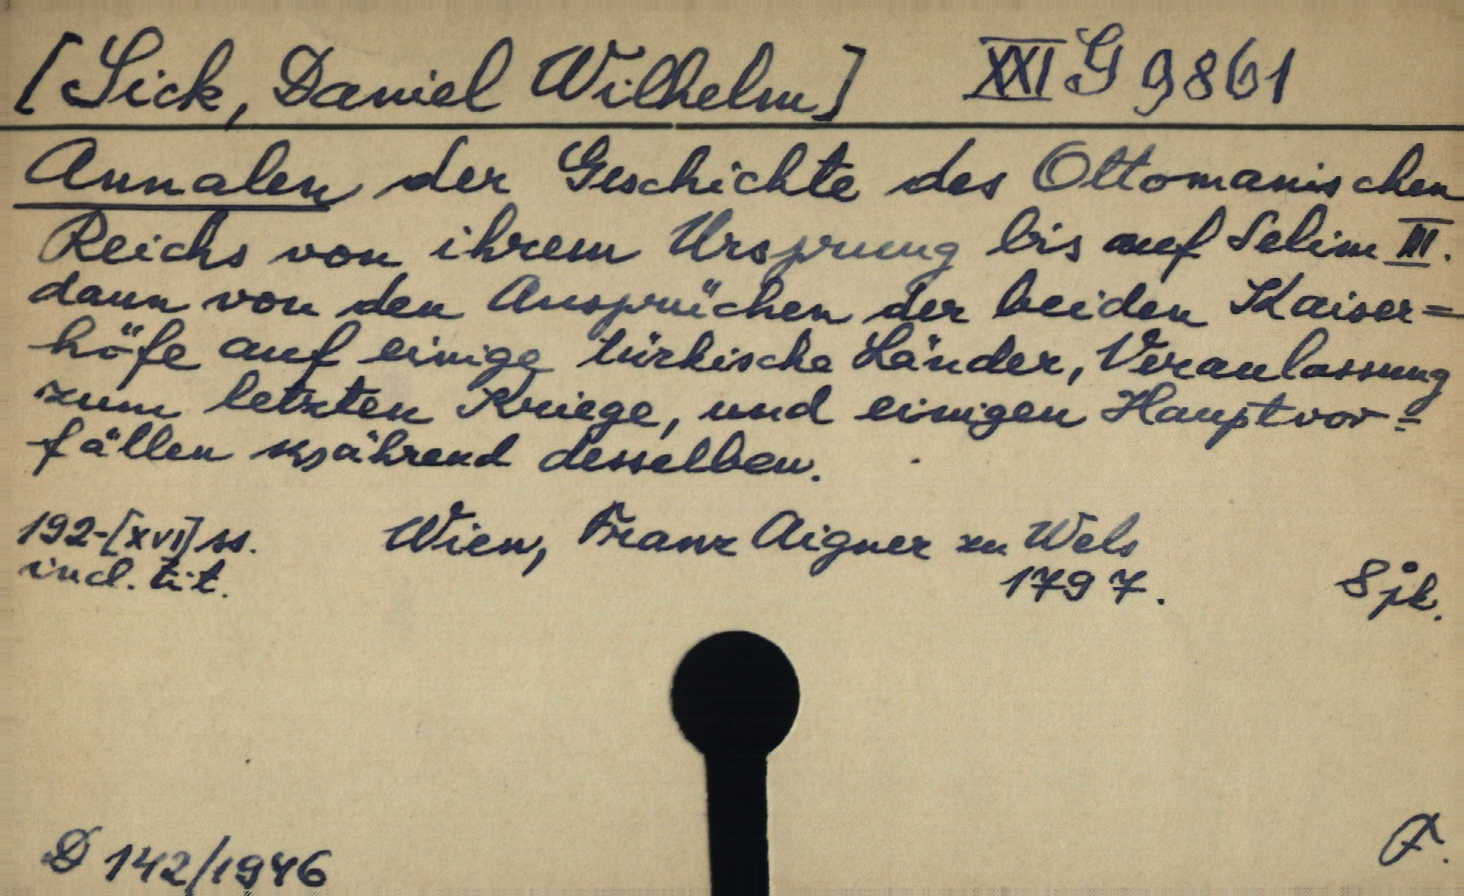 [Sick, Daniel Wilhelm] XXI G 9861
Annalen der Geschichte des Ottomanischen
Reichs von ihrem Ursprung bis auf Selim III.
dann von den Ansprüchen der beiden Kaiser=
höfe auf einige türkische Länder, Veranlassung
zum letzten Kriege, und einigen Hauptvor=
fällen während desselben.
192-[XVI] ss. Wien, Franz Aigner zu Wels
incl. tit. 1797. 8°
D 142/1946